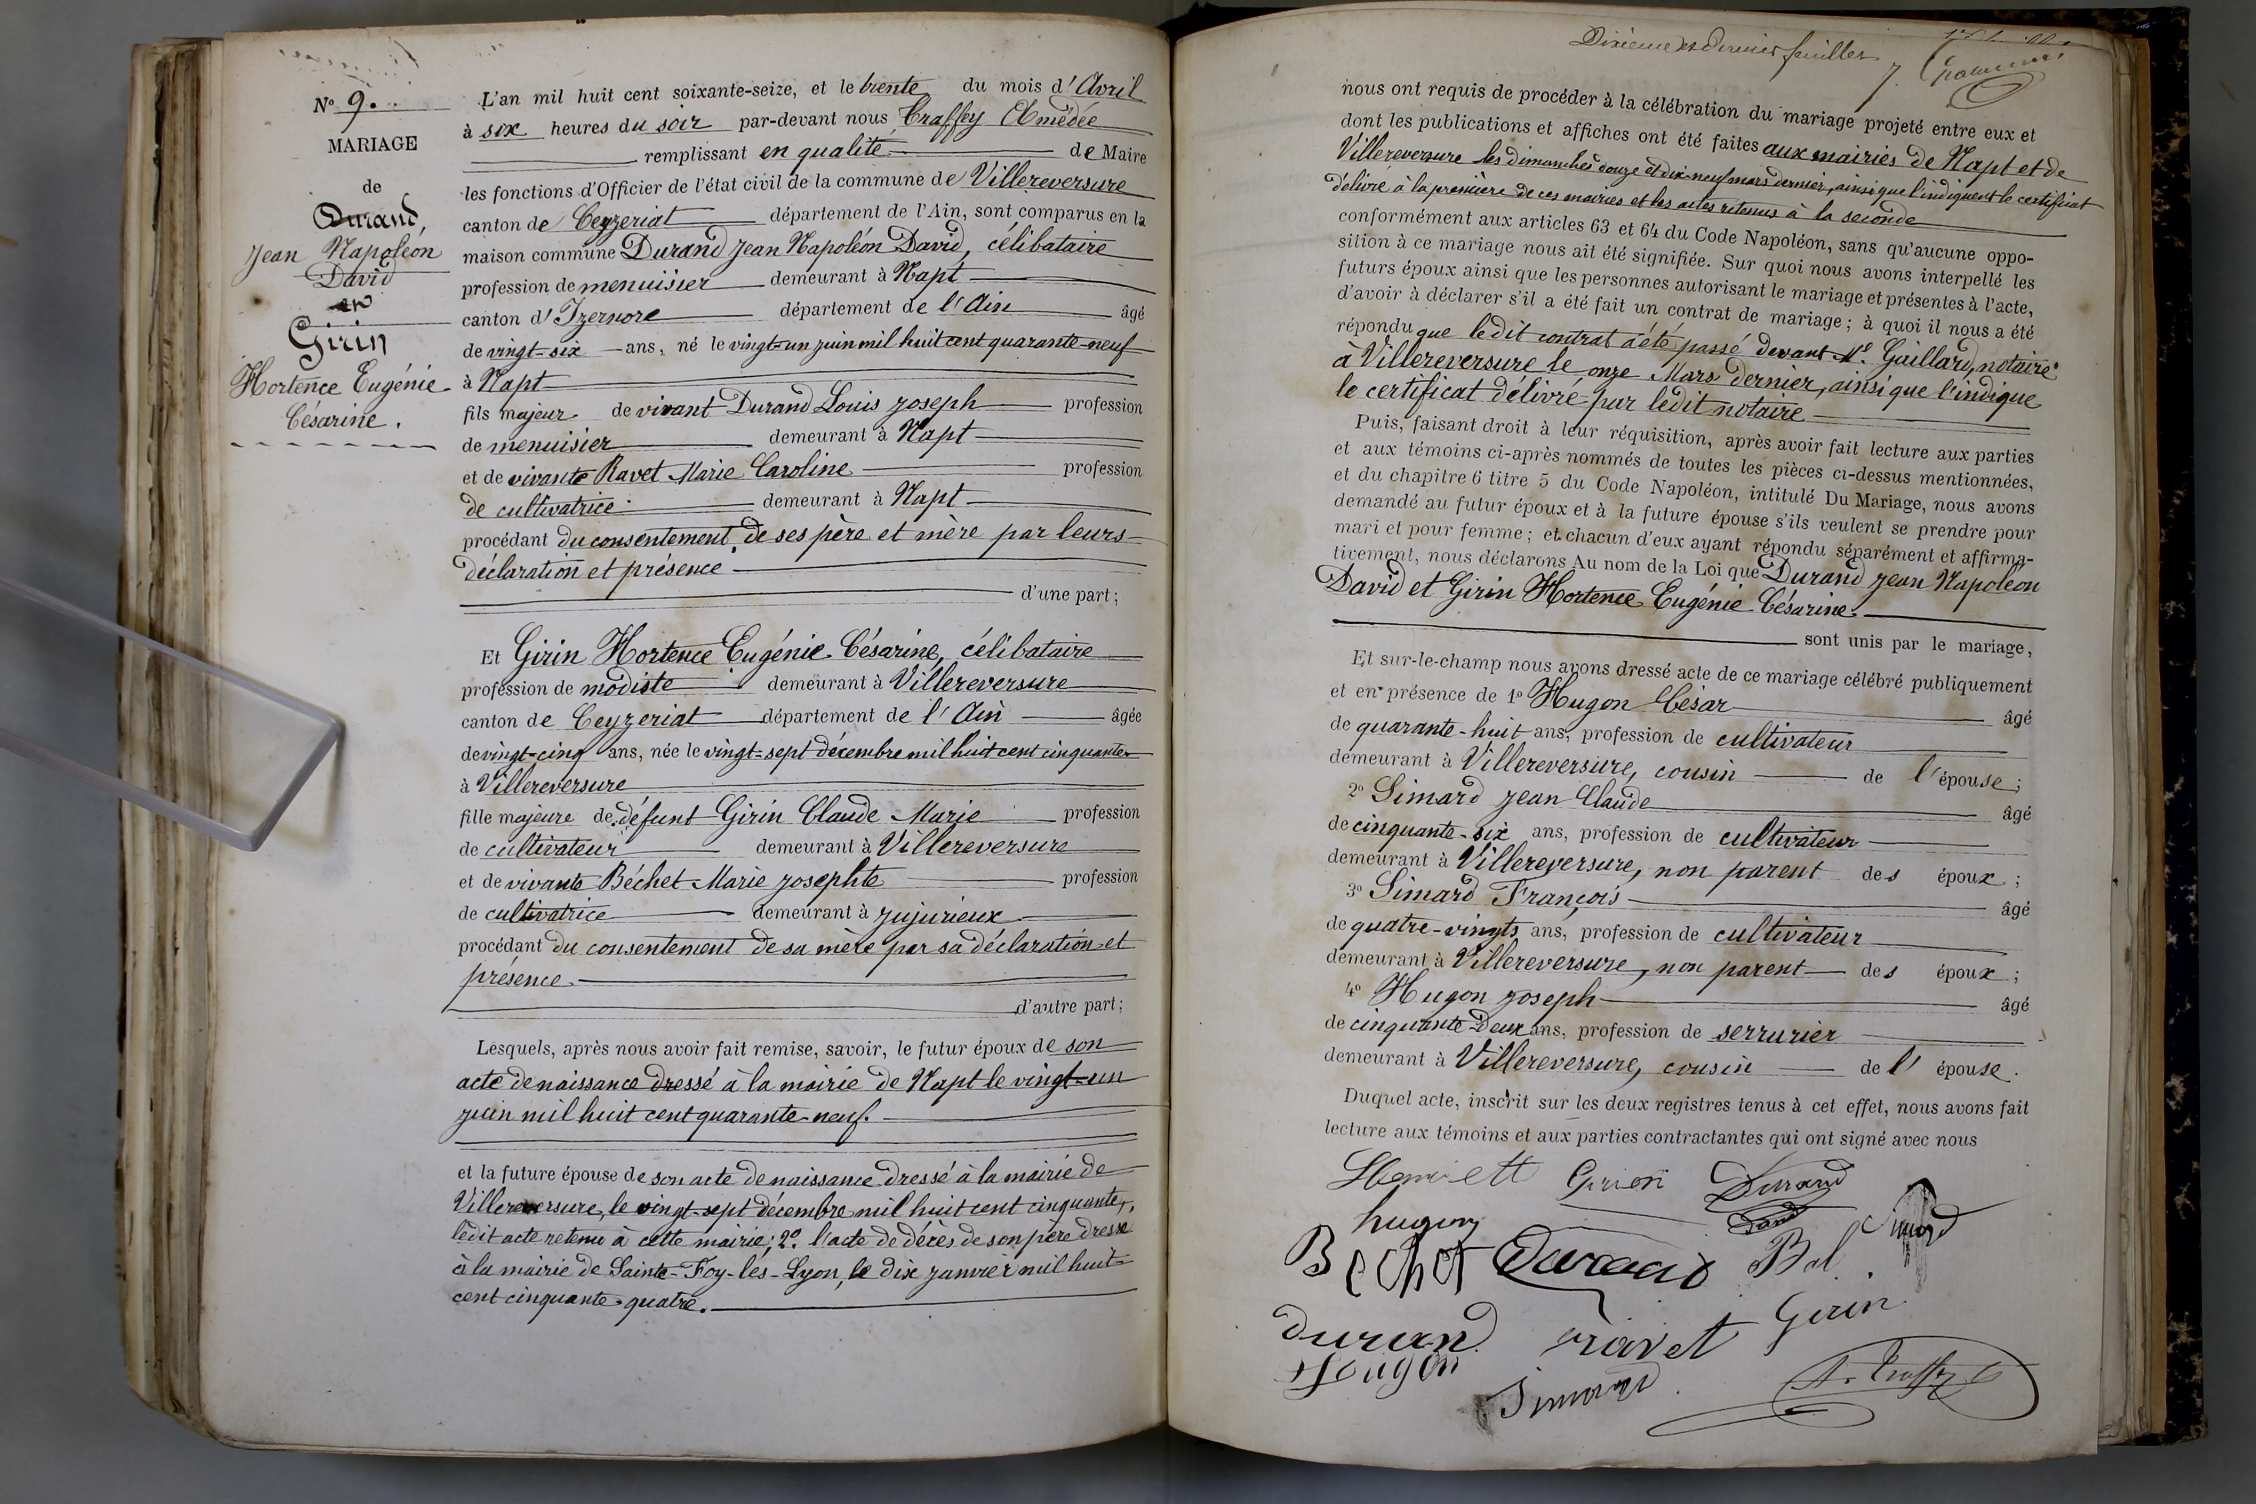 N° 9.
MARIAGE
de
Durand
Jean Napoléon
David
et
Girin
Hortence Eugénie
Césarine.
L'an mil huit cent soixante-seize, et le trente du mois d'Avril
à six heures du soir par-devant nous Traffey Amédée
remplissant en qualité de Maire
les fonctions d'Officier de l'état civil de la commune de Villereversure
canton de Ceyzeriat département de l'Ain, sont comparus en la
maison commune Durand Jean Napoléon David, célibataire
profession de menuisier demeurant à Napt
canton d'Izernore département de l'Ain âgé
de vingt-six ans, né le vingt-un juin mil huit cent quarante-neuf
à Napt
fils majeur de vivant Durand Louis Joseph profession
de menuisier demeurant à Napt
et de vivante Ravet Marie Caroline profession
de cultivatrice demeurant à Napt
procédant du consentement de ses père et mère par leurs
déclaration et présence
d'une part;
Et Girin Hortence Eugénie Césarine, célibataire
profession de modiste demeurant à Villereversure
canton de Ceyzeriat département de l'Ain âgée
de vingt-cinq ans, née le vingt-sept décembre mil huit cent cinquante
à Villereversure
fille majeure de défunt Girin Claude Marie profession
de cultivateur demeurant à Villereversure
et de vivante Béchet Marie Josephte profession
de cultivatrice demeurant à Jujurieux
procédant du consentement de sa mère par sa déclaration et
présence
d'autre part;
Lesquels, après nous avoir fait remise, savoir, le futur époux de son
acte de naissance dressé à la mairie de Napt le vingt-un
juin mil huit cent quarante-neuf.
et la future épouse de son acte de naissance dressé à la mairie de
Villereversure, le vingt-sept décembre mil huit cent cinquante,
ledit acte retenu à cette mairie; 2° l'acte de décès de son père dressé
à la mairie de Sainte-Foy-les-Lyon, le dix janvier mil huit
cent cinquante-quatre.
Dixième et dernier feuillet
nous ont requis de procéder à la célébration du mariage projeté entre eux et
dont les publications et affiches ont été faites aux mairies de Napt et de
Villereversure les dimanches douze et dix-neuf mars dernier, ainsi que l'indiquent le certificat
délivré à la première de ces mairies et les actes retenus à la seconde
conformément aux articles 63 et 64 du Code Napoléon, sans qu'aucune oppo-
sition à ce mariage nous ait été signifiée. Sur quoi nous avons interpellé les
futurs époux ainsi que les personnes autorisant le mariage et présentes à l'acte,
d'avoir à déclarer s'il a été fait un contrat de mariage; à quoi il nous a été
répondu que ledit contrat a été passé devant Me. Gaillard, notaire
à Villereversure le onze Mars dernier, ainsi que l'indique
le certificat délivré par ledit notaire
Puis, faisant droit à leur réquisition, après avoir fait lecture aux parties
et aux témoins ci-après nommés de toutes les pièces ci-dessus mentionnées,
et du chapitre 6 titre 5 du Code Napoléon, intitulé Du Mariage, nous avons
demandé au futur époux et à la future épouse s'ils veulent se prendre pour
mari et pour femme; et chacun d'eux ayant répondu séparément et affirma-
tivement, nous déclarons Au nom de la Loi que Durand Jean Napoléon
David et Girin Hortence Eugénie Césarine
sont unis par le mariage,
Et sur-le-champ nous avons dressé acte de ce mariage célébré publiquement
et en présence de 1° Hugon César âgé
de quarante-huit ans, profession de cultivateur
demeurant à Villereversure, cousin de l'épouse;
2° Simard Jean Claude âgé
de cinquante-six ans, profession de cultivateur
demeurant à Villereversure, non parent des époux;
3° Simard François âgé
de quatre-vingts ans, profession de cultivateur
demeurant à Villereversure, non parent des époux;
4° Hugon Joseph âgé
de cinquante-deux ans, profession de serrurier
demeurant à Villereversure, cousin de l'épouse.
Duquel acte, inscrit sur les deux registres tenus à cet effet, nous avons fait
lecture aux témoins et aux parties contractantes qui ont signé avec nous
Girin Durand
hugon Simard
Bechet Durand
Durand ravet Girin
Hugon
Simard A. Traffey